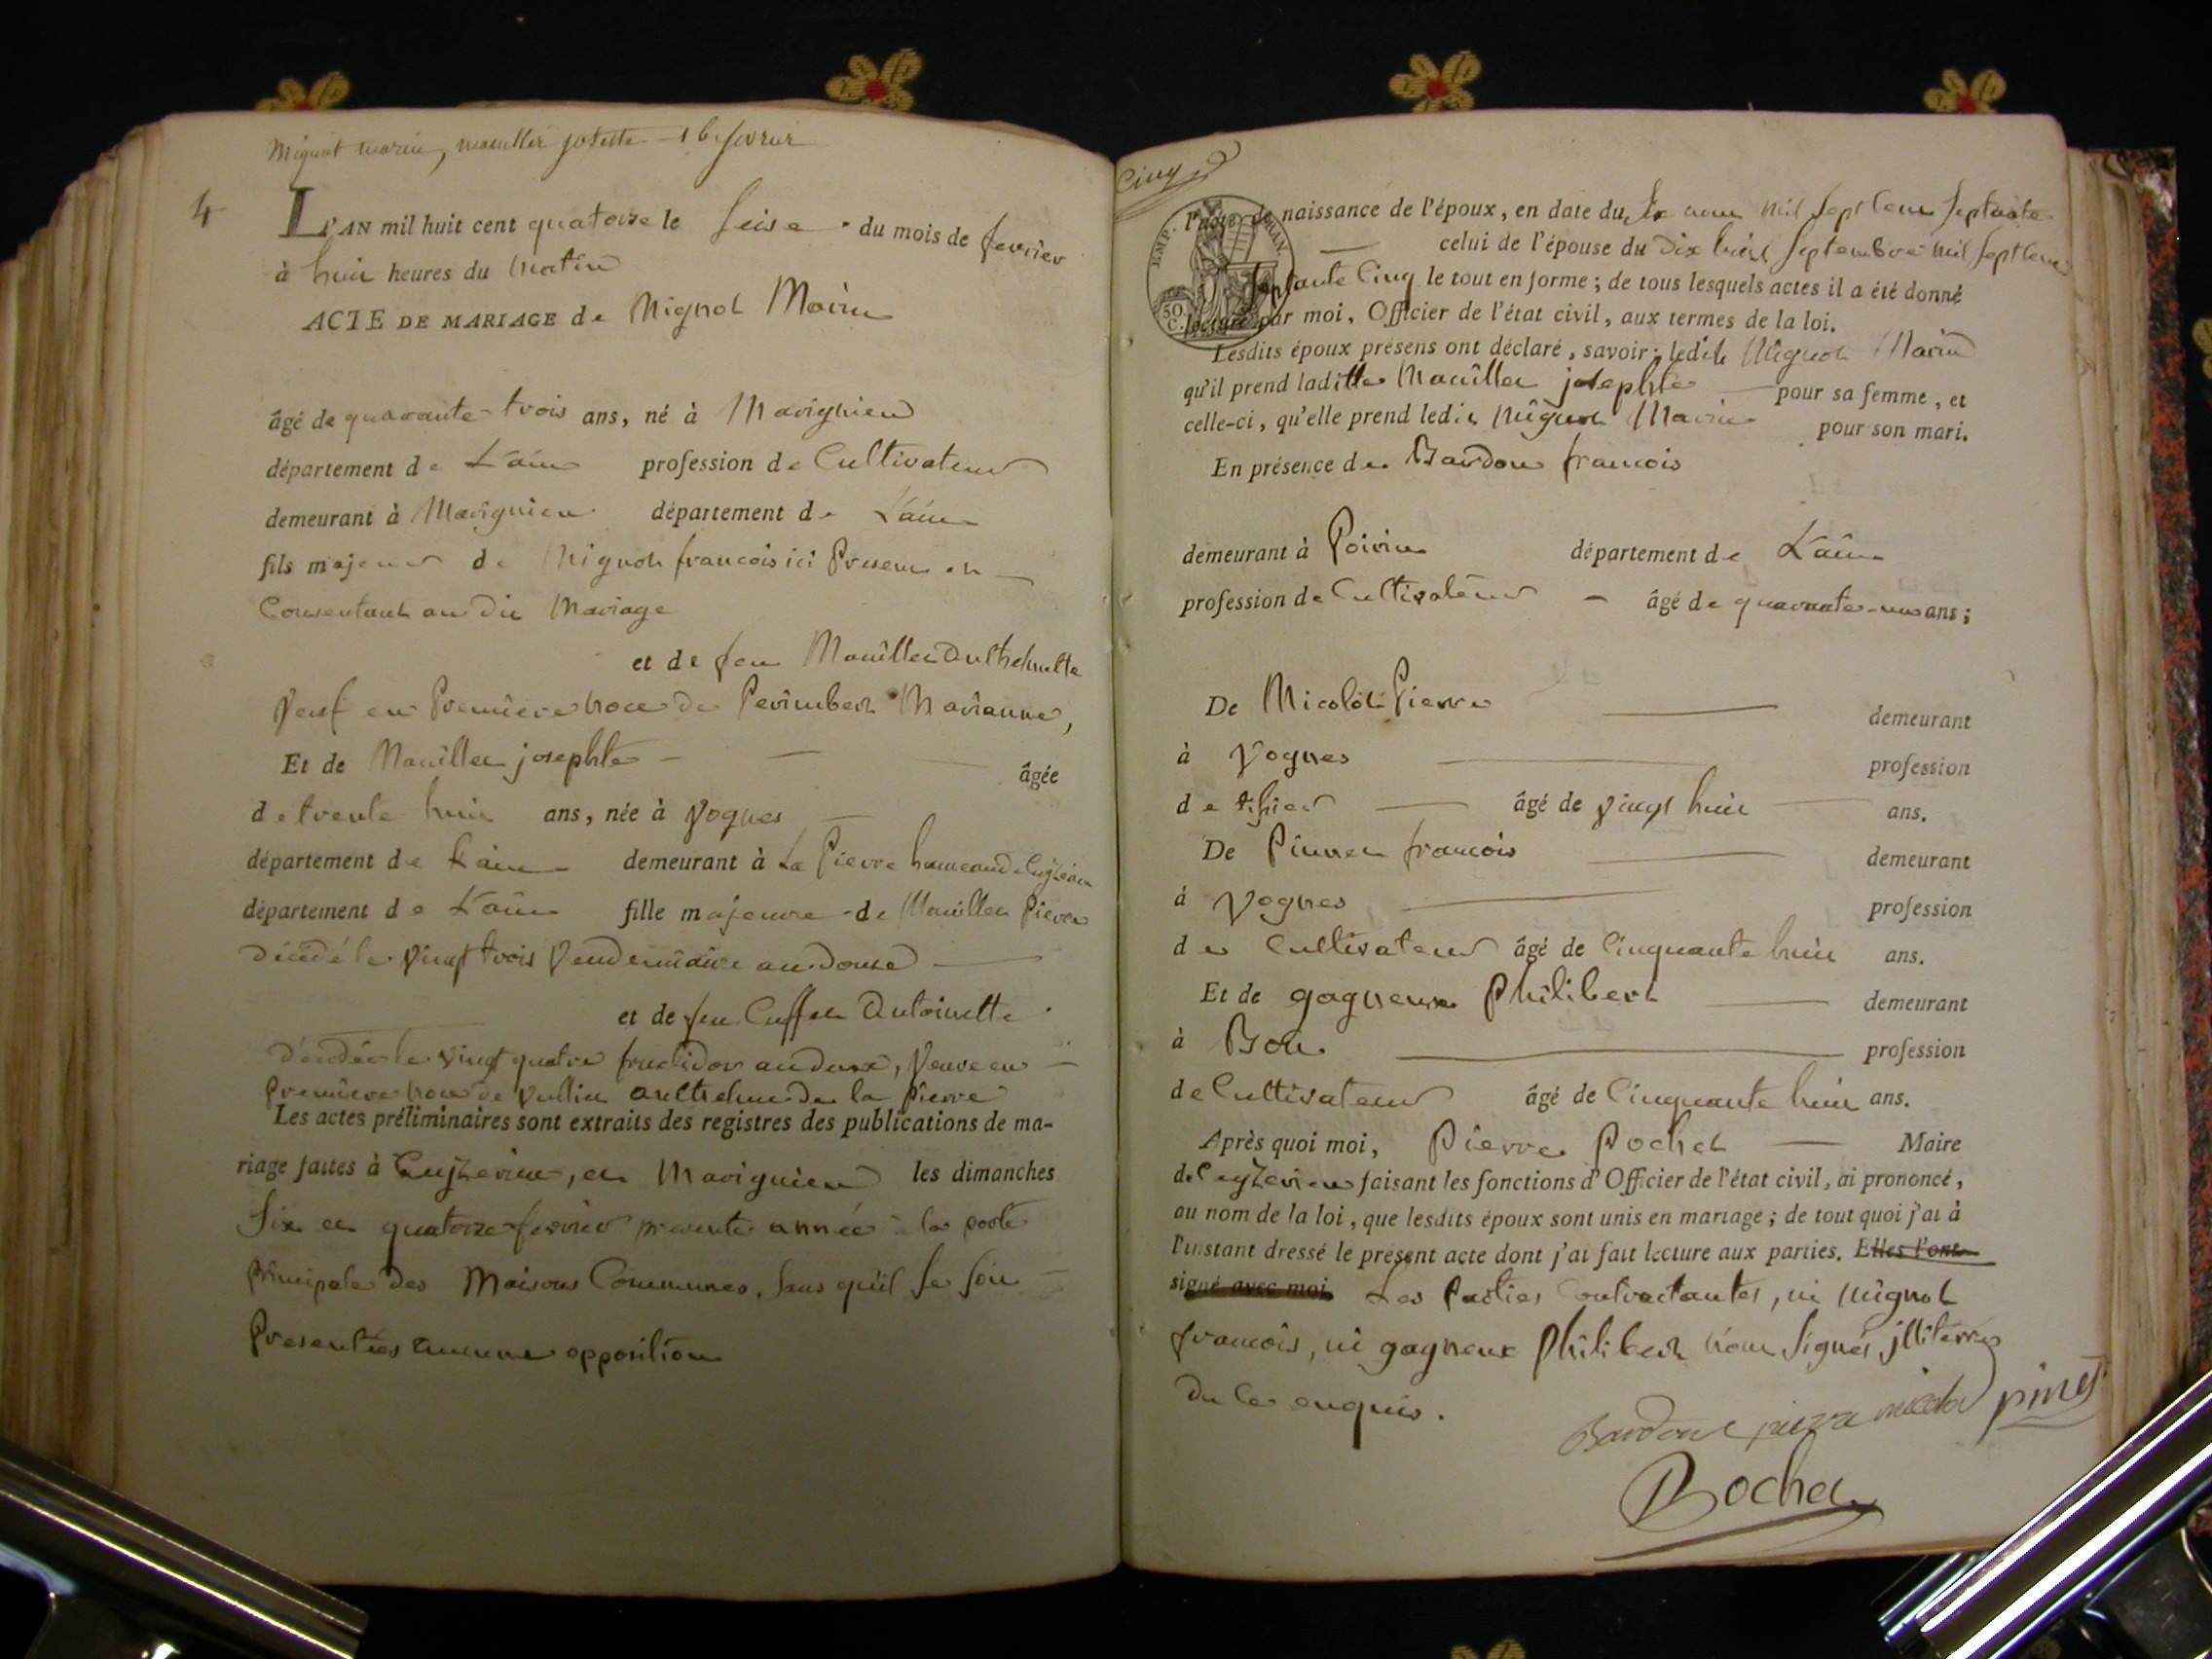 Mignot marin, maullier josette - 16 fevrier
4
L'AN mil huit cent quatorze le seise du mois de fevrier
à huit heures du Matin
ACTE DE MARIAGE de Mignot Marin
âgé de quarante-trois ans, né à Marignieu
département de L'ain profession de Cultivateur
demeurant à Marignieu département de L'ain
fils majeur de Mignot francois ici Present et
Consentant au dit Mariage
et de feu Mouiller
Veuf en Premiere noce de Perimbert Marianne,
Et de Mouiller josephte âgée
de trente huit ans, née à Vognes
département de L'ain demeurant à La Pierre hameau de
département de L'ain fille majeure de Mouiller Pierre
Décédé le Vingt trois Vendemiaire an douse
et de feu Cuffet Antoinette
décédée le vingt quatre fructidor an deux, Veuve en
Premiere noce de Vullin Anthelme de la Pierre
Les actes préliminaires sont extraits des registres des publications de ma-
riage faites à Ceyzerieu, et Marignieu les dimanches
Six et quatorze fevrier presente année à la porte
principale des Maisons Communes. Sans qu'il se soit
Presentées aucune opposition
Cinq
EMP. FRAN.
50 C.
l'acte de naissance de l'époux, en date du Six aout Mil Sept Cent Septante
celui de l'épouse du Dix huit Septembre mil Sept Cent
Septante Cinq le tout en forme ; de tous lesquels actes il a été donné
lecture par moi, Officier de l'état civil, aux termes de la loi.
Lesdits époux présens ont déclaré, savoir : ledit Mignot Marin
qu'il prend laditte Mouiller josephte pour sa femme, et
celle-ci, qu'elle prend ledit Mignot Marin pour son mari.
En présence de Bardon francois
demeurant à Poirin département de L'ain
profession de Cultivateur âgé de quarante-un ans ;
De Micolot Pierre demeurant
à Vognes profession
de âgé de vingt huit ans.
De Pinnet francois demeurant
à Vognes profession
de Cultivateur âgé de Cinquante huit ans.
Et de gagneux Philibert demeurant
à Bou profession
de Cultivateur âgé de Cinquante huit ans.
Après quoi moi, Pierre Bochet Maire
de Ceyzerieu faisant les fonctions d'Officier de l'état civil, ai prononcé,
au nom de la loi, que lesdits époux sont unis en mariage ; de tout quoi j'ai à
l'instant dressé le présent acte dont j'ai fait lecture aux parties. Elles l'ont
signé avec moi Les Parties Contractantes, ni Mignot
francois, ni gagneux Philibert n'ont Signés jlliterés
De ce enquis.
Bardon pierre micolot pinet
Bochet